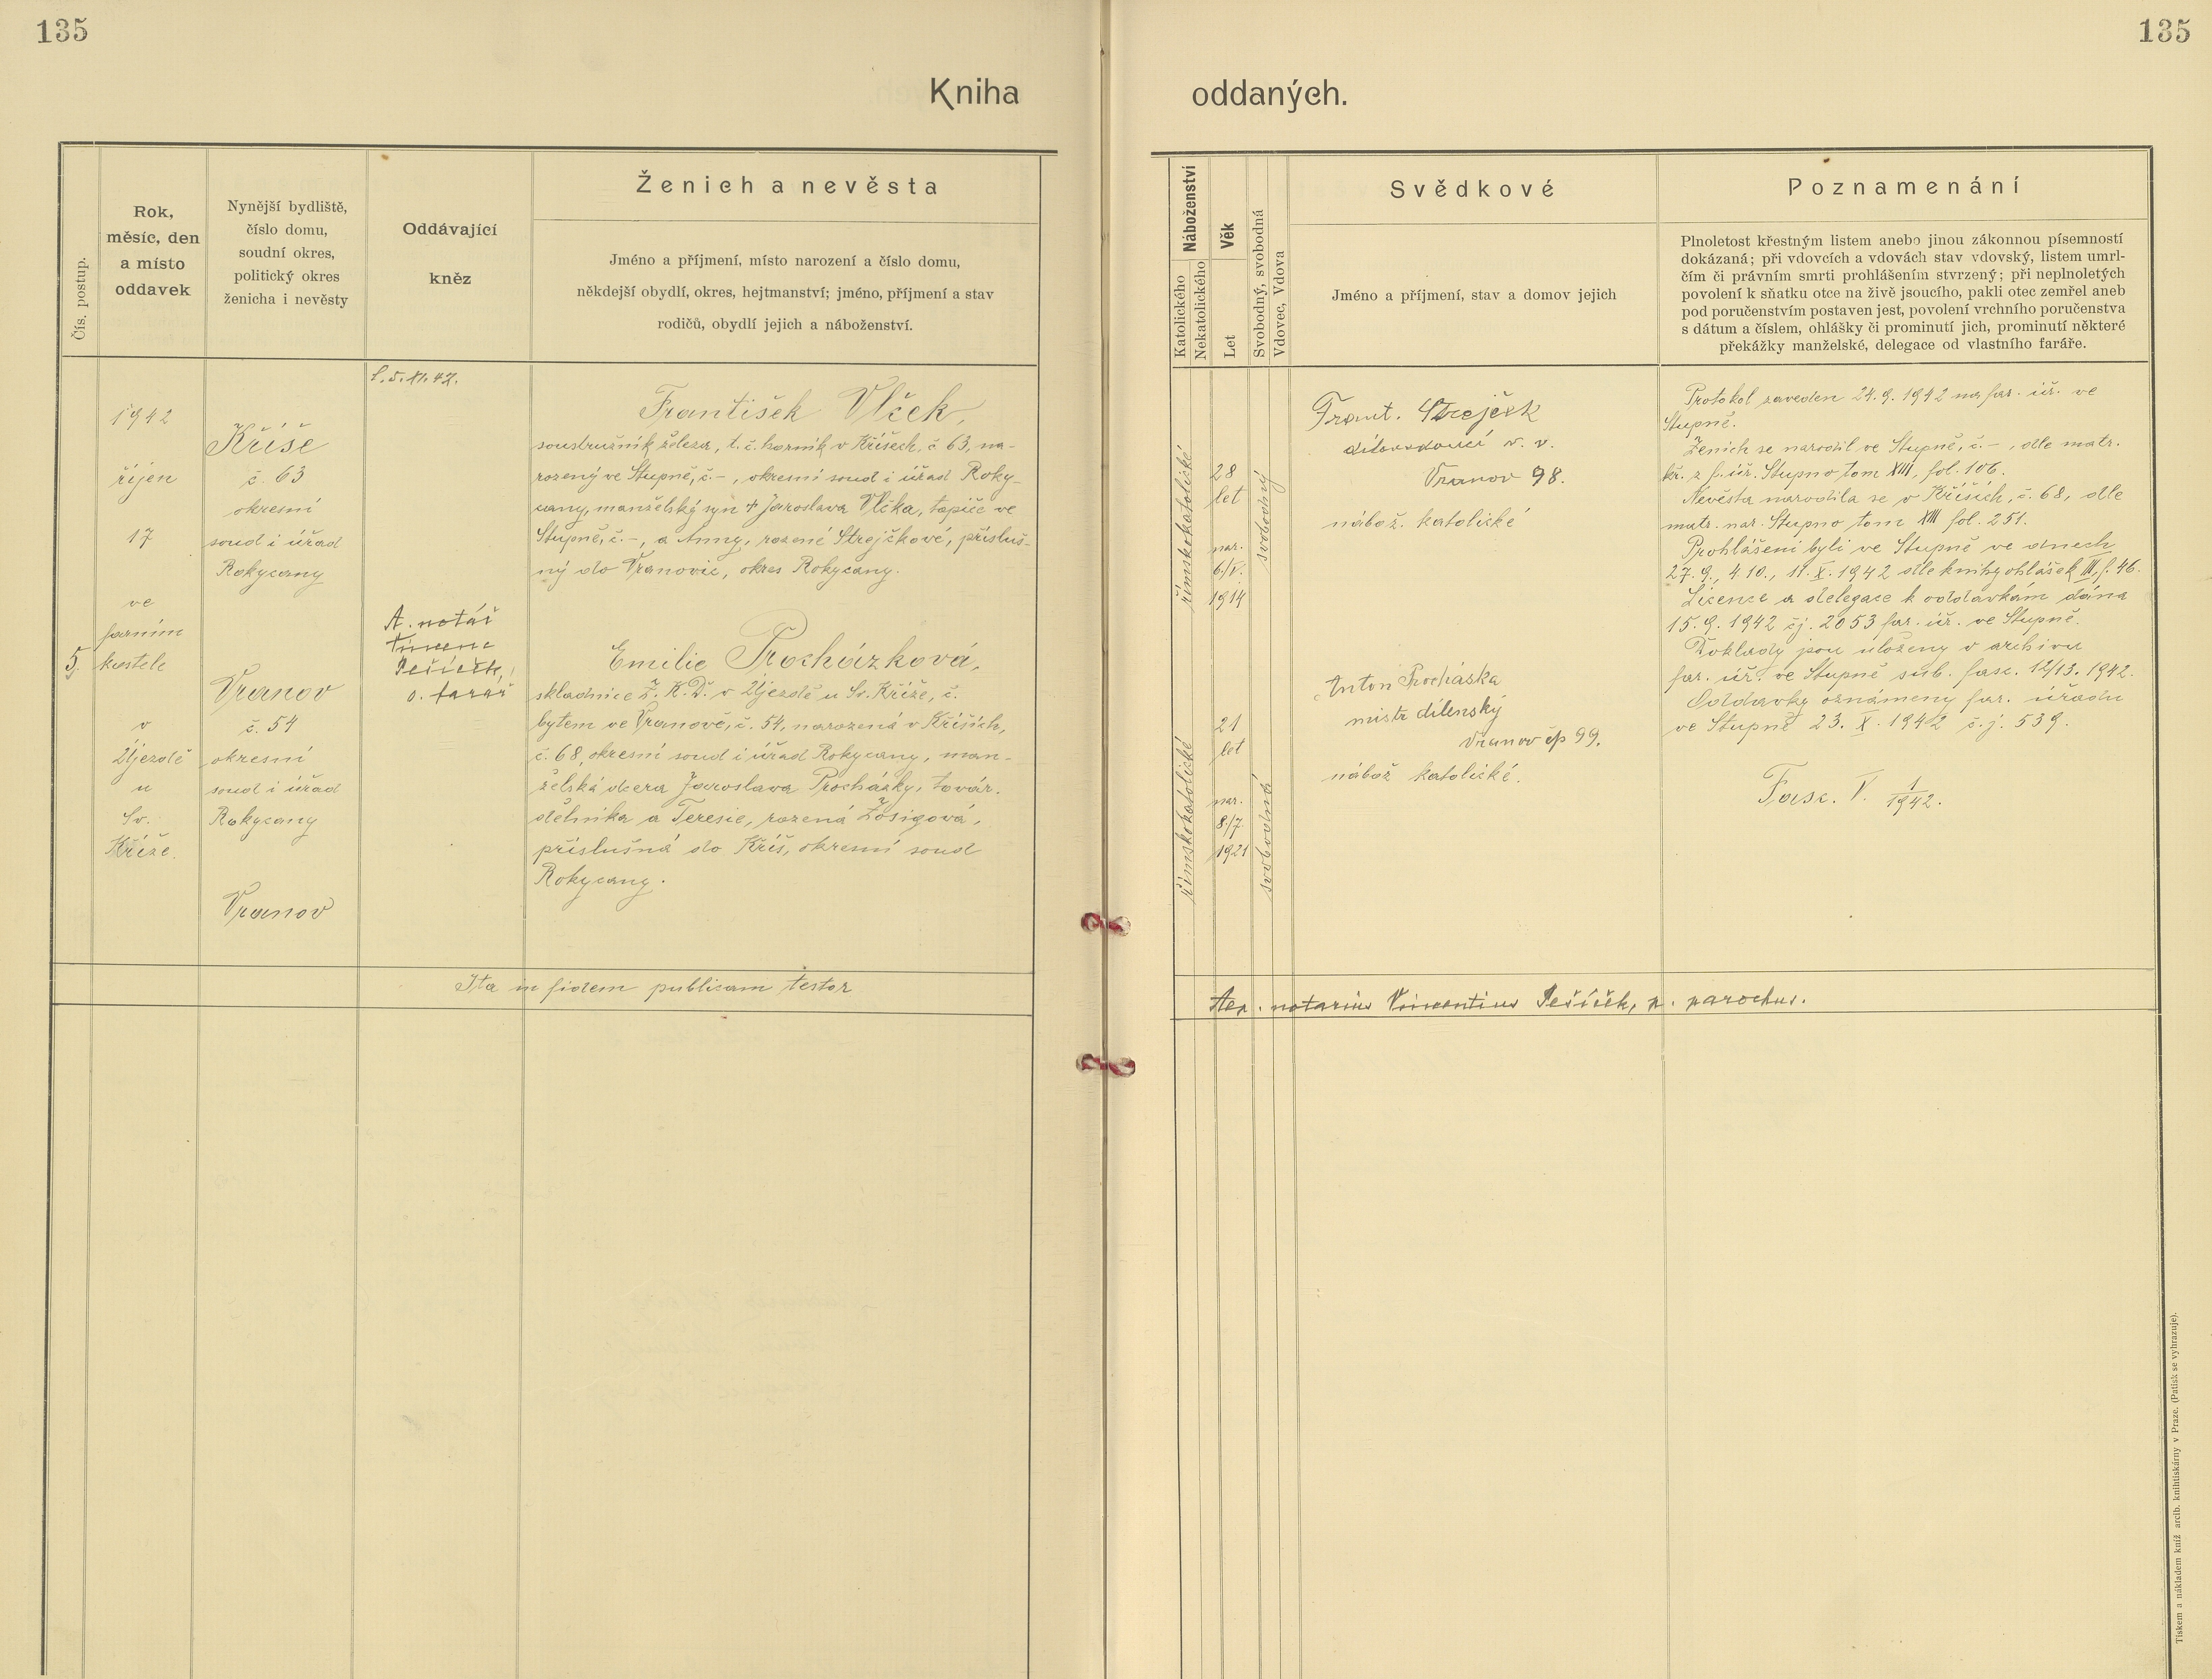 135
135
Kniha oddaných.
Čís. postup.
Rok,
měsíc, den
a místo
oddavek
Nynější bydliště,
číslo domu,
soudní okres,
politický okres
ženicha i nevěsty
Oddávající
kněz
Ženich a nevěsta
Jméno a příjmení, místo narození a číslo domu,
někdejší obydlí, okres, hejtmanství; jméno, příjmení a stav
rodičů, obydlí jejich a náboženství.
Náboženství
Katolického
Nekatolického
Věk
Let
Svobodný, svobodná
Vdovec, Vdova
Svědkové
Jméno a příjmení, stav a domov jejich
Poznamenání
Plnoletost křestným listem anebo jinou zákonnou písemností
dokázaná; při vdovcích a vdovách stav vdovský, listem umrl-
čím či právním smrti prohlášením stvrzený; při neplnoletých
povolení k sňatku otce na živě jsoucího, pakli otec zemřel aneb
pod poručenstvím postaven jest, povolení vrchního poručenstva
s dátum a číslem, ohlášky či prominutí jich, prominutí některé
překážky manželské, delegace od vlastního faráře.
5.
1942
říjen
17
ve
farním
kostele
v
Újezdě
u
Sv.
Kříže.
Kříše
č. 63
okresní
soud i úřad
Rokycany
Vranov
č. 54
okresní
soud i úřad
Rokycany
Vranov
5. XI. 42.
A. notář
Vincenc
Pešíček,
o. farář
František Vlček,
soustružník železa, t. č. horník v Kříšech, č 63, na-
rozený ve Stupně, č. -, okresní soud i úřad Roky-
cany, manželský syn + Jaroslava Vlčka, topiče ve
Stupně, č. -, a Anny, rozené Strejčkové, přísluš-
ný do Vranovic, okres Rokycany.
Emilie Procházková,
skladnice Ž. K. D. v Újezdě u Sv. Kříže, č.
bytem ve Vranově, č. 54, narozená v Kříších,
č. 68, okresní soud i úřad Rokycany, man-
želská dcera Jaroslava Procházky, továr.
dělníka a Teresie, rozená Žosigová,
příslušná do Kříš, okresní soud
Rokycany.
římskokatolické
28
let
nar.
6./V.
1914
svobodný
římskokatolické
21
let
nar.
8./7
1921
svobodná
Frant. Strejček
dílovedoucí v. v.
Vranov 98.
nábož. katolické
Anton Procháska
mistr dílenský
Vranov čp 99.
nábož katolické.
Protokol zaveden 24. 9. 1942 na far. úř. ve
Stupně.
Ženich se narodil ve Stupně, č. -, dle matr.
kř. z f. úř. Stupno tom XIII, fol. 106.
Nevěsta narodila se v Kříších, č. 68, dle
matr. nar. Stupno tom XIII fol. 251.
Prohlášeni byli ve Stupně ve dnech
27. 9., 4. 10., 11. X. 1942 dle knihy ohlášek III, f. 46.
Licence a delegace k oddavkám dána
15. 9. 1942 čj. 2053 far. úř. ve Stupně.
Doklady jsou uloženy v archivu
far. úř. ve Stupně sub. fasc. 12/13. 1942.
Oddavky oznámeny far. úřadu
ve Stupně 23. X. 1942 č. j. 539.
Fasc. V. 1/1942.
Ita in fidem publicam testor
Aep. notarius Vincentius Pešíček, p. parochus.
Tiskem a nákladem kníž. arcib. knihtiskárny v Praze. (Patisk se vyhrazuje).